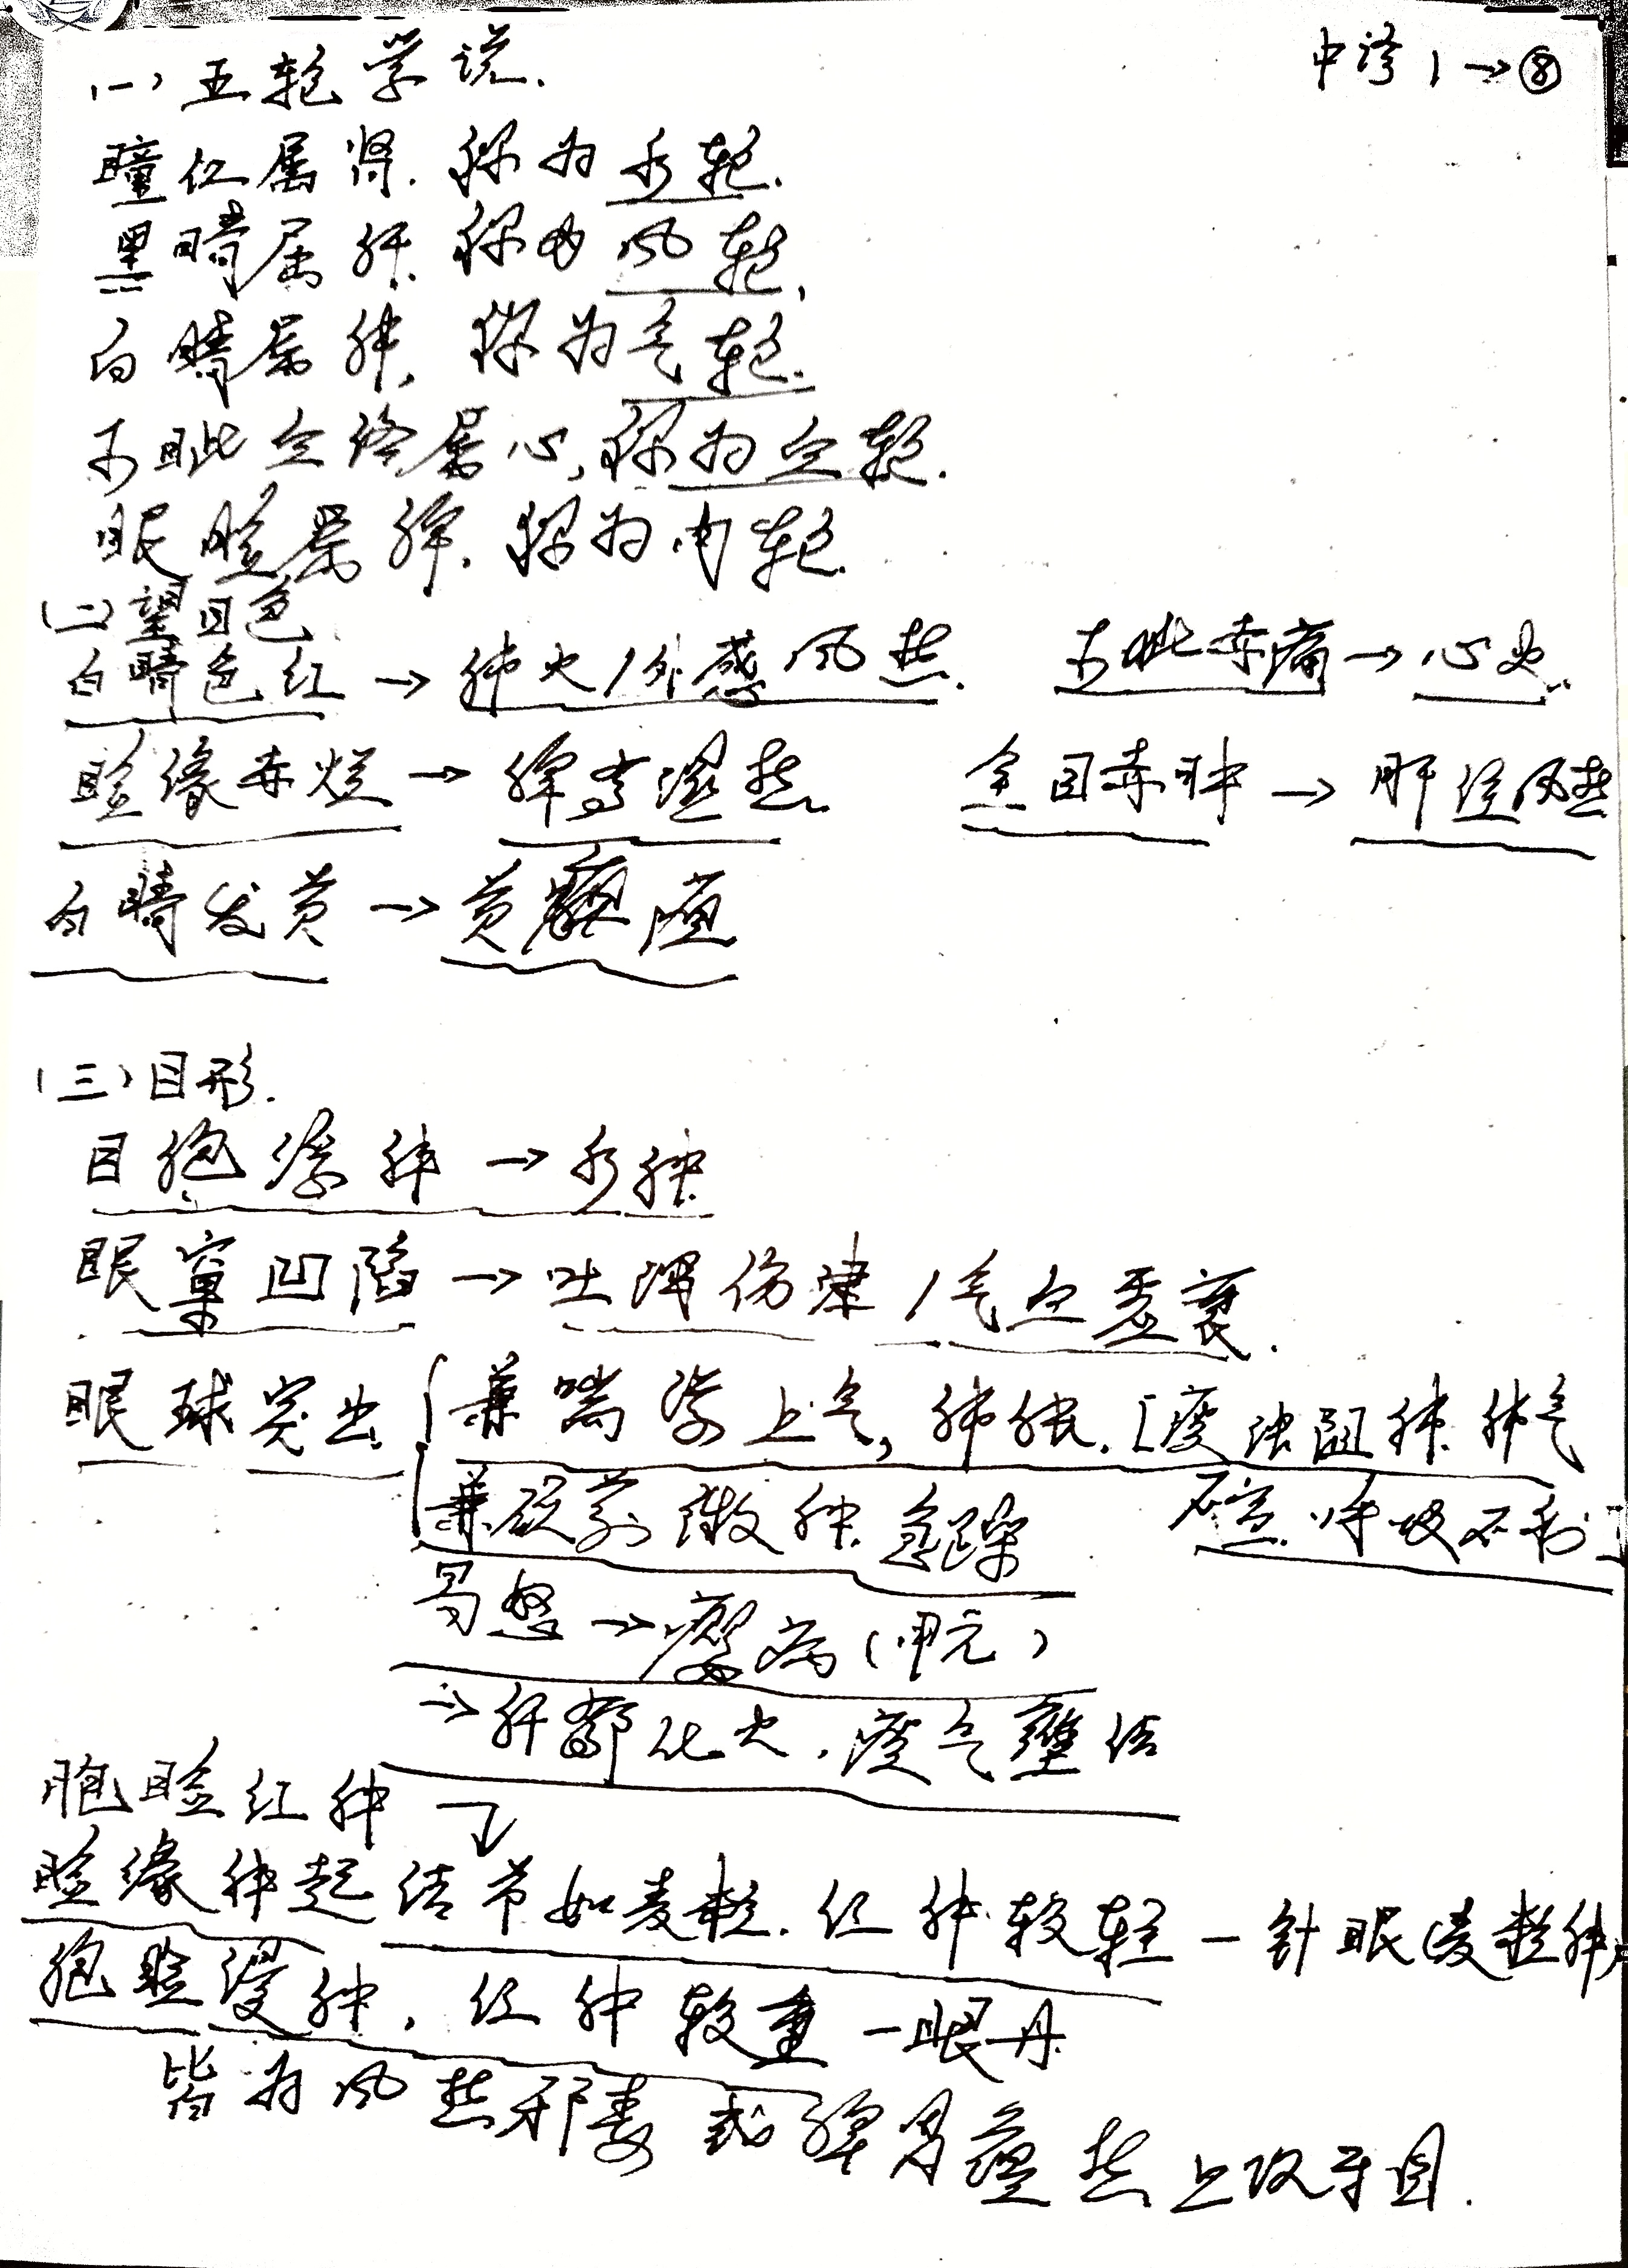 中诊1→⑧
(一)五轮学说.
瞳仁属肾.称为水轮.
黑睛属肝.称为风轮.
白睛属肺,称为气轮.
目眦血络属心,称为血轮.
眼睑属脾.称为肉轮.
(二)望目色
白睛色红→肺火/外感风热. 目眦赤痛→心火.
睑缘赤烂→脾胃湿热. 全目赤肿→肝经风热
白睛发黄→黄疸
(三)目形.
目胞浮肿→水肿.
眼窠凹陷→吐泻伤津/气血虚衰.
眼球突出 兼喘满上气,肺胀.[痰浊阻肺.肺气
不宣.呼吸不利]
兼颈前微肿.急躁
易怒→瘿病(甲亢)
→肝郁化火.痰气壅结
胞睑红肿
睑缘肿起结节如麦粒.红肿较轻—针眼(麦粒肿)
胞睑漫肿,红肿较重—眼丹.
皆为风热邪毒或脾胃蕴热上攻于目.